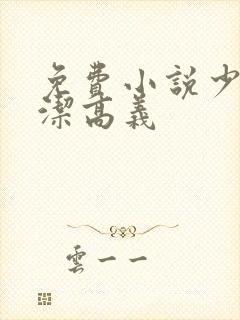 免費小説少
潔高義
雲一一